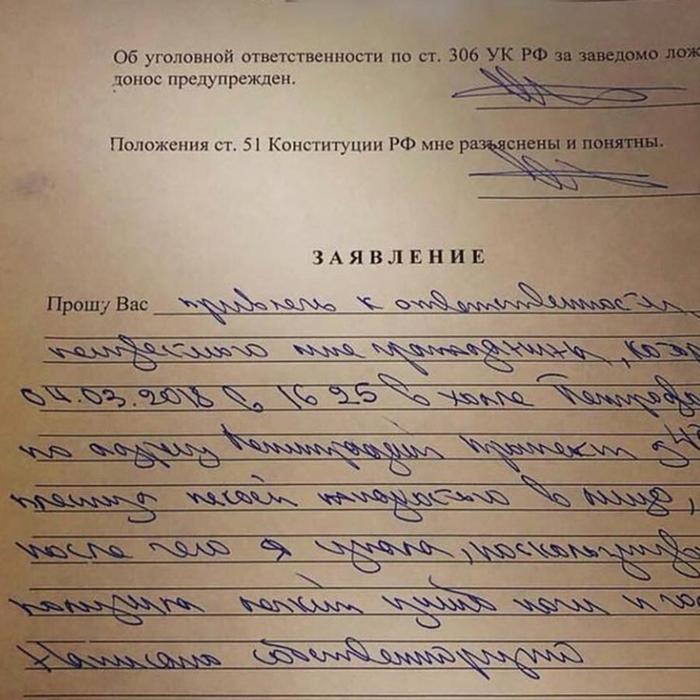 Об уголовной ответственности по ст. 306 УК РФ за заведомо лож
донос предупрежден.
Положения ст. 51 Конституции РФ мне разъяснены и понятны.
ЗАЯВЛЕНИЕ
Прошу Вас привлечь к ответственности
неизвестного мне гражданина, кото
04.03.2018 в 16 25 в холле
по адресу Ленинградский проспект
в лицо,
после чего я упала,
получила ушиб ноги и
Написано собственноручно